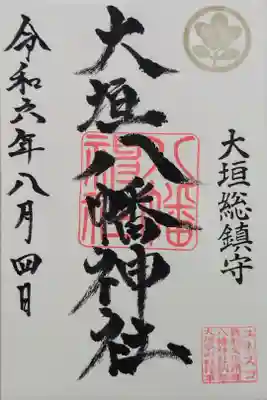 大垣総鎮守
大垣八幡神社
令和六年八月四日
八幡
神社